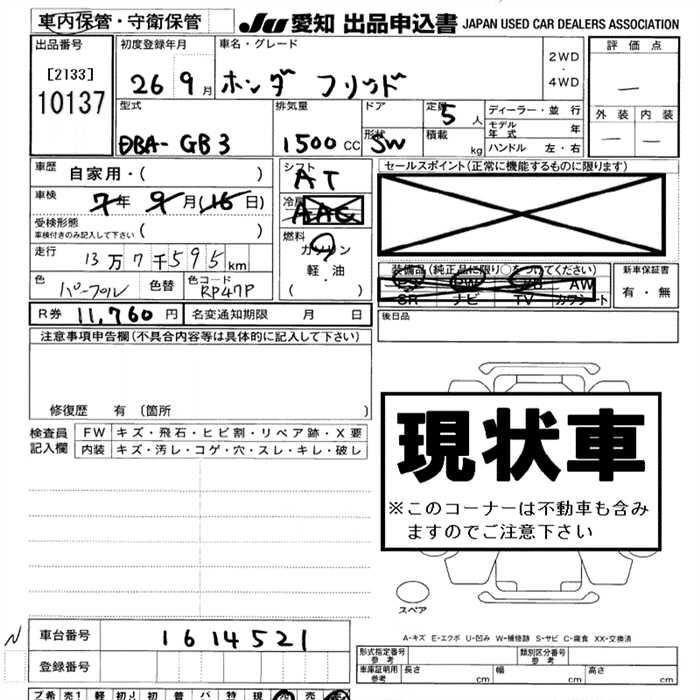 車内保管・守衛保管 JU 愛知 出品申込書 JAPAN USED CAR DEALERS ASSOCIATION
出品番号 初度登録年月 車名・グレード 2WD・4WD 評価点
[2133] 10137 26 9月 ホンダ フリード —
型式 排気量 ドア 定員 5人 ディーラー・並行 外装 内装
DBA-GB3 1500cc 形状 SW 積載 kg モデル年式 年 — —
ハンドル 左・右
車歴 自家用・( ) シフト AT セールスポイント(正常に機能するものに限ります)
車検 7年9月(16日) 冷房 AAC
受検形態 車検付きのみ記入して下さい ( ) 燃料 ガソリン
走行 13万7千595km 軽・油 ・( ) 装備品(純正品に限り○をつけてください) 新車保証書
色 パープル 色替 色コード RP47P PW AW 有・無
SR ナビ TV カワシート
R券 11,760円 名変通知期限 月 日 後日品
注意事項申告欄(不具合内容等は具体的に記入して下さい)
修復歴 有(箇所 )
検査員記入欄 FW キズ・飛石・ヒビ割・リペア跡・X要
内装 キズ・汚レ・コゲ・穴・スレ・キレ・破レ
現状車
※このコーナーは不動車も含み
ますのでご注意下さい
スペア
A-キズ E-エクボ U-凹み W-補修跡 S-サビ C-腐食 XX-交換済
N 車台番号 1614521
登録番号
形式指定番号 参考 類別区分番号 参考
車庫証明用 参考 長さ cm 幅 cm 高さ cm